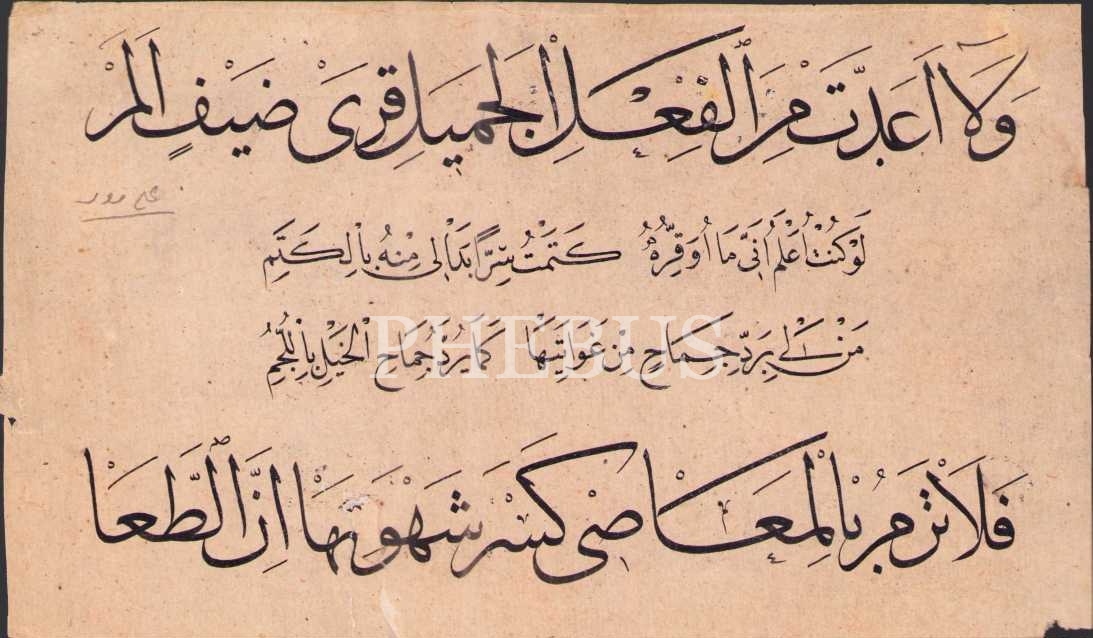 وَلَا اَعَدَّتْ مِنَ الْفِعْلِ الْجَمِيلِ قِرَىْ ضَيْفٍ اَلَمَّ
لَوْ كُنْتُ اَعْلَمُ اَنِّى مَا اُوَقِّرُهُ كَتَمْتُ سِرًّا بَدَا لِى مِنْهُ بِالْكَتَمِ
PHEBUS
مَنْ لِى بِرَدِّ جِمَاحٍ مِنْ غَوَايَتِهَا كَمَا يُرَدُّ جِمَاحُ الْخَيْلِ بِاللُّجُمِ
فَلَا تَرُمْ بِالْمَعَاصِى كَسْرَ شَهْوَتِهَا اِنَّ الطَّعَا